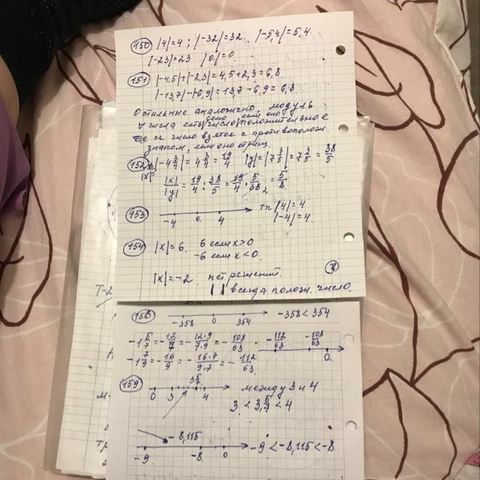 150 |4|=4; |-32|=32. |-5,4|=5,4
|-23|=23 |0|=0.
151 |-4,5|+|-2,3|=4,5+2,3=6,8
|-13,7|-|-6,9|=13,7-6,9=6,8
Остальные аналогично модуль
числа есть число положительное
число взятое с противополож
знаком, если оно отриц.
152 |x|=|-4 3/4|=4 3/4=19/4 |y|=|7 3/5|=7 3/5=38/5
|x|/|y|=19/4:38/5=19/4·5/38=5/8
153 -4 0 4 тк |4|=4
|-4|=4.
154 |x|=6. 6 если x>0
-6 если x<0
|x|=-2 нет решений.
| | всегда полож. число.
158 -358 0 354 -358<354
-1 5/7=-12/7=-12·9/7·9=-108/63 -112/63 -108/63
-1 7/9=-16/9=-16·7/9·7=-112/63 0.
159 0 3 4 между 3 и 4
-8,115 -9<-8,115<-8
-9 -8 0